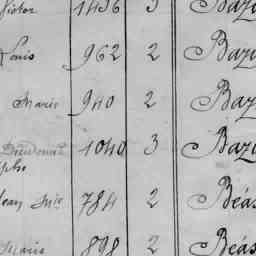 Victor 1436 3 Bazi
Louis 962 2 Baz
Marie 940 2 Baz
Dieudonné 1040 3 Bazi
phe
Jean Mie 784 2 Béas
Marie 898 2 Béas